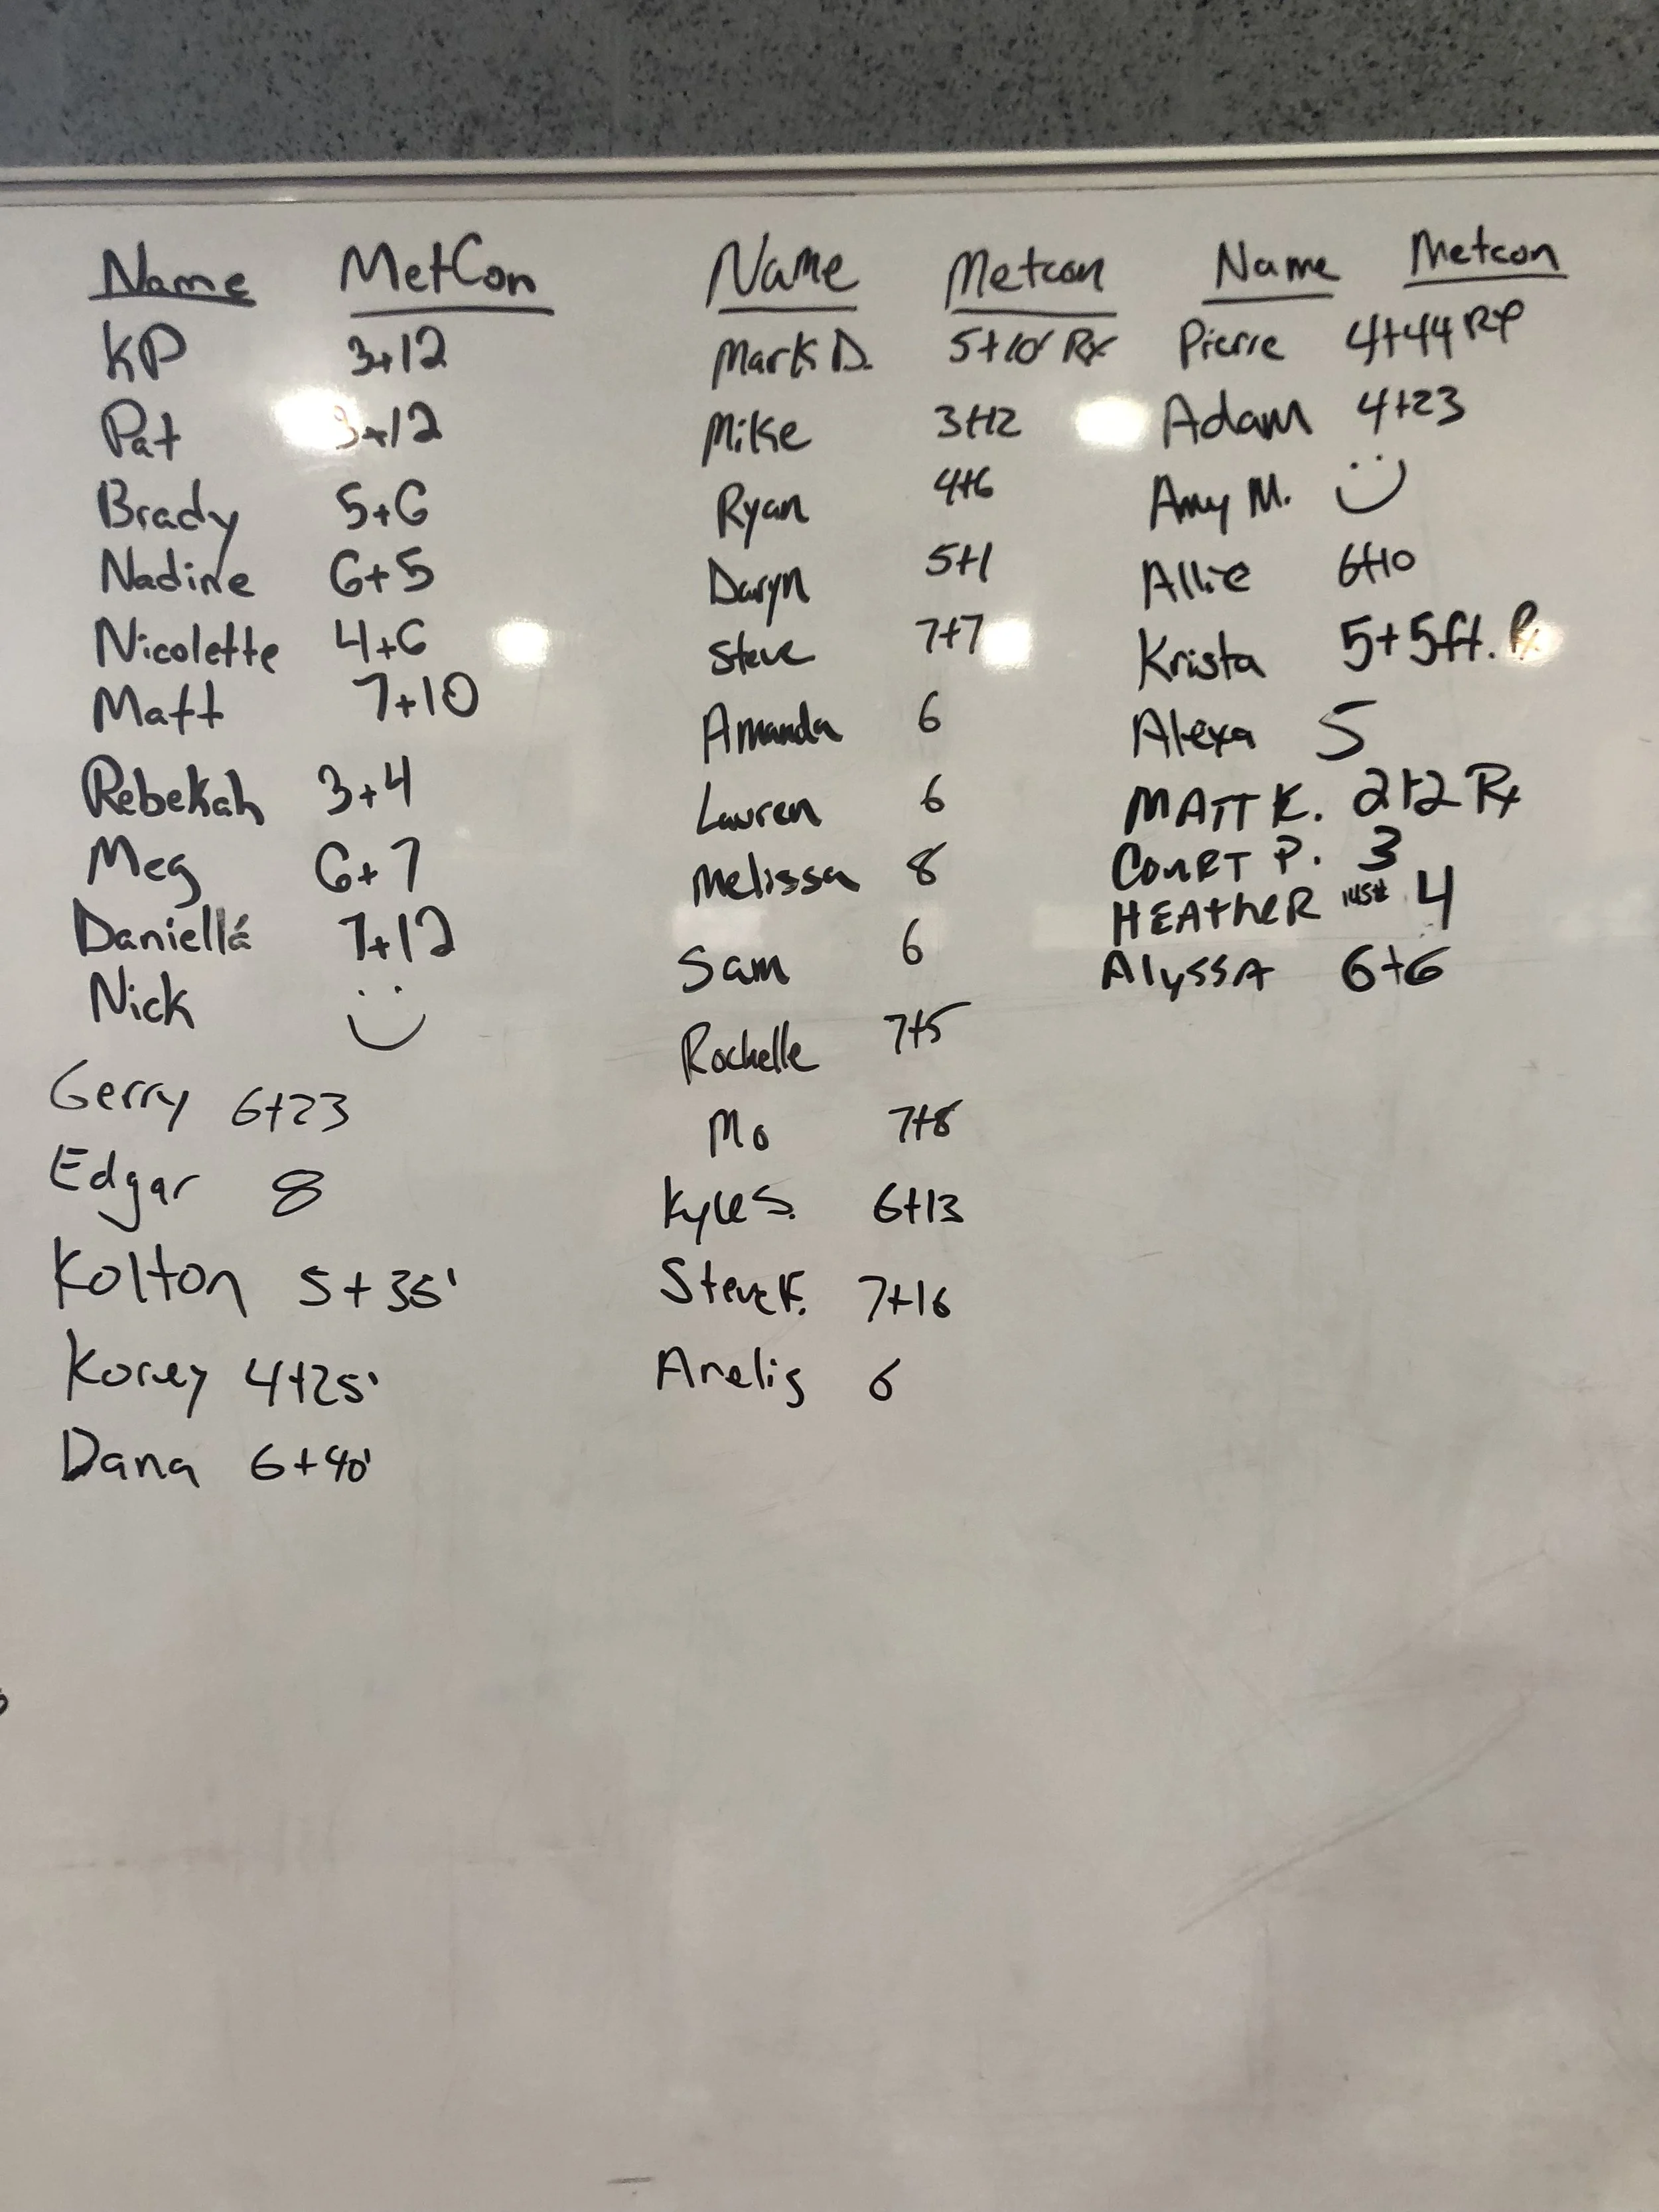 Name MetCon
KP 3+12
Pat 3+12
Brady 5+6
Nadine 6+5
Nicolette 4+6
Matt 7+10
Rebekah 3+4
Meg 6+7
Daniellá 7+12
Nick
Gerry 6+23
Edgar 8
Kolton 5+35'
Korey 4+25'
Dana 6+40'
Name Metcon
Mark D. 5+10' Rx
Mike 3+12
Ryan 4+6
Daryn 5+1
Steve 7+7
Amanda 6
Lauren 6
Melissa 8
Sam 6
Rochelle 7+5
Mo 7+8
Kyle S. 6+13
Steve F. 7+16
Arelis 6
Name Metcon
Pierre 4+44 RX
Adam 4+23
Amy M.
Allie 6+10
Krista 5+5ft. Rx
Alexa 5
MATT K. 2+2 Rx
COURT P. 3
HEATHER 4
ALYSSA 6+6